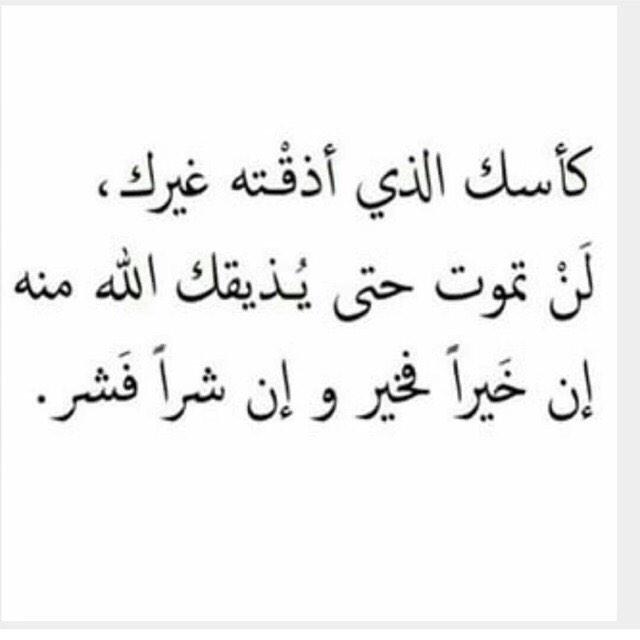 كأسك الذي أذقْته غيرك،
لَنْ تموت حتى يُذيقك الله منه
إن خَيراً فخير و إن شراً فَشر.